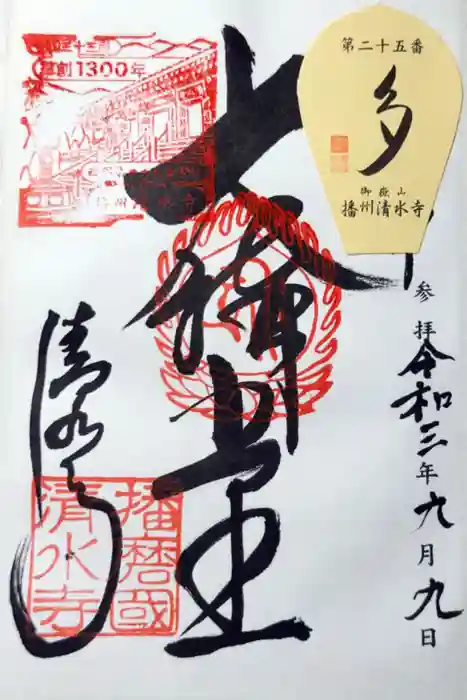 第二十五番
多
御嶽山
播州清水寺
草創1300年
大講堂
参拝
令和三年九月九日
清水寺
播磨國
清水寺